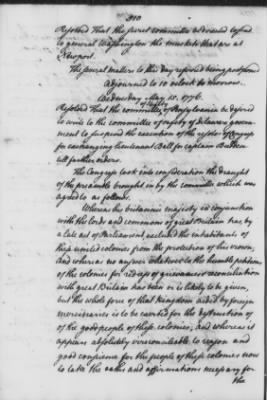 Resolved That the secret committee be directed to send
to general Washington the muskets that are at
Newport.
The several matters to this day referred being postponed
Adjourned to 10 o'clock to morrow.
Wednesday May 15. 1776.
of safety
Resolved That the committee of Pennsylvania be desired
to write to the committee of safety of Delaware govern-
ment to suspend the execution of the resolve of Congress
for exchanging lieutenant Ball for captain Budden
till farther orders.
The Congress took into consideration the draught
of the preamble brought in by the committee which was
agreed to as follows.
Whereas his britannic majesty in conjunction
with the lords and commons of great Britain has, by
a late act of Parliament, excluded the inhabitants of
these united colonies from the protection of his crown,
and whereas no answer whatever to the humble petitions
of the colonies for redress of grievances & reconciliation
with great Britain has been or is likely to be given,
but the whole force of that kingdom aided by foreign
mercenaries is to be exerted for the destruction of
of the good people of these colonies; and whereas it
appears absolutely irreconcileable to reason and
good conscience for the people of these colonies now
to take the oaths and affirmations necessary for
the